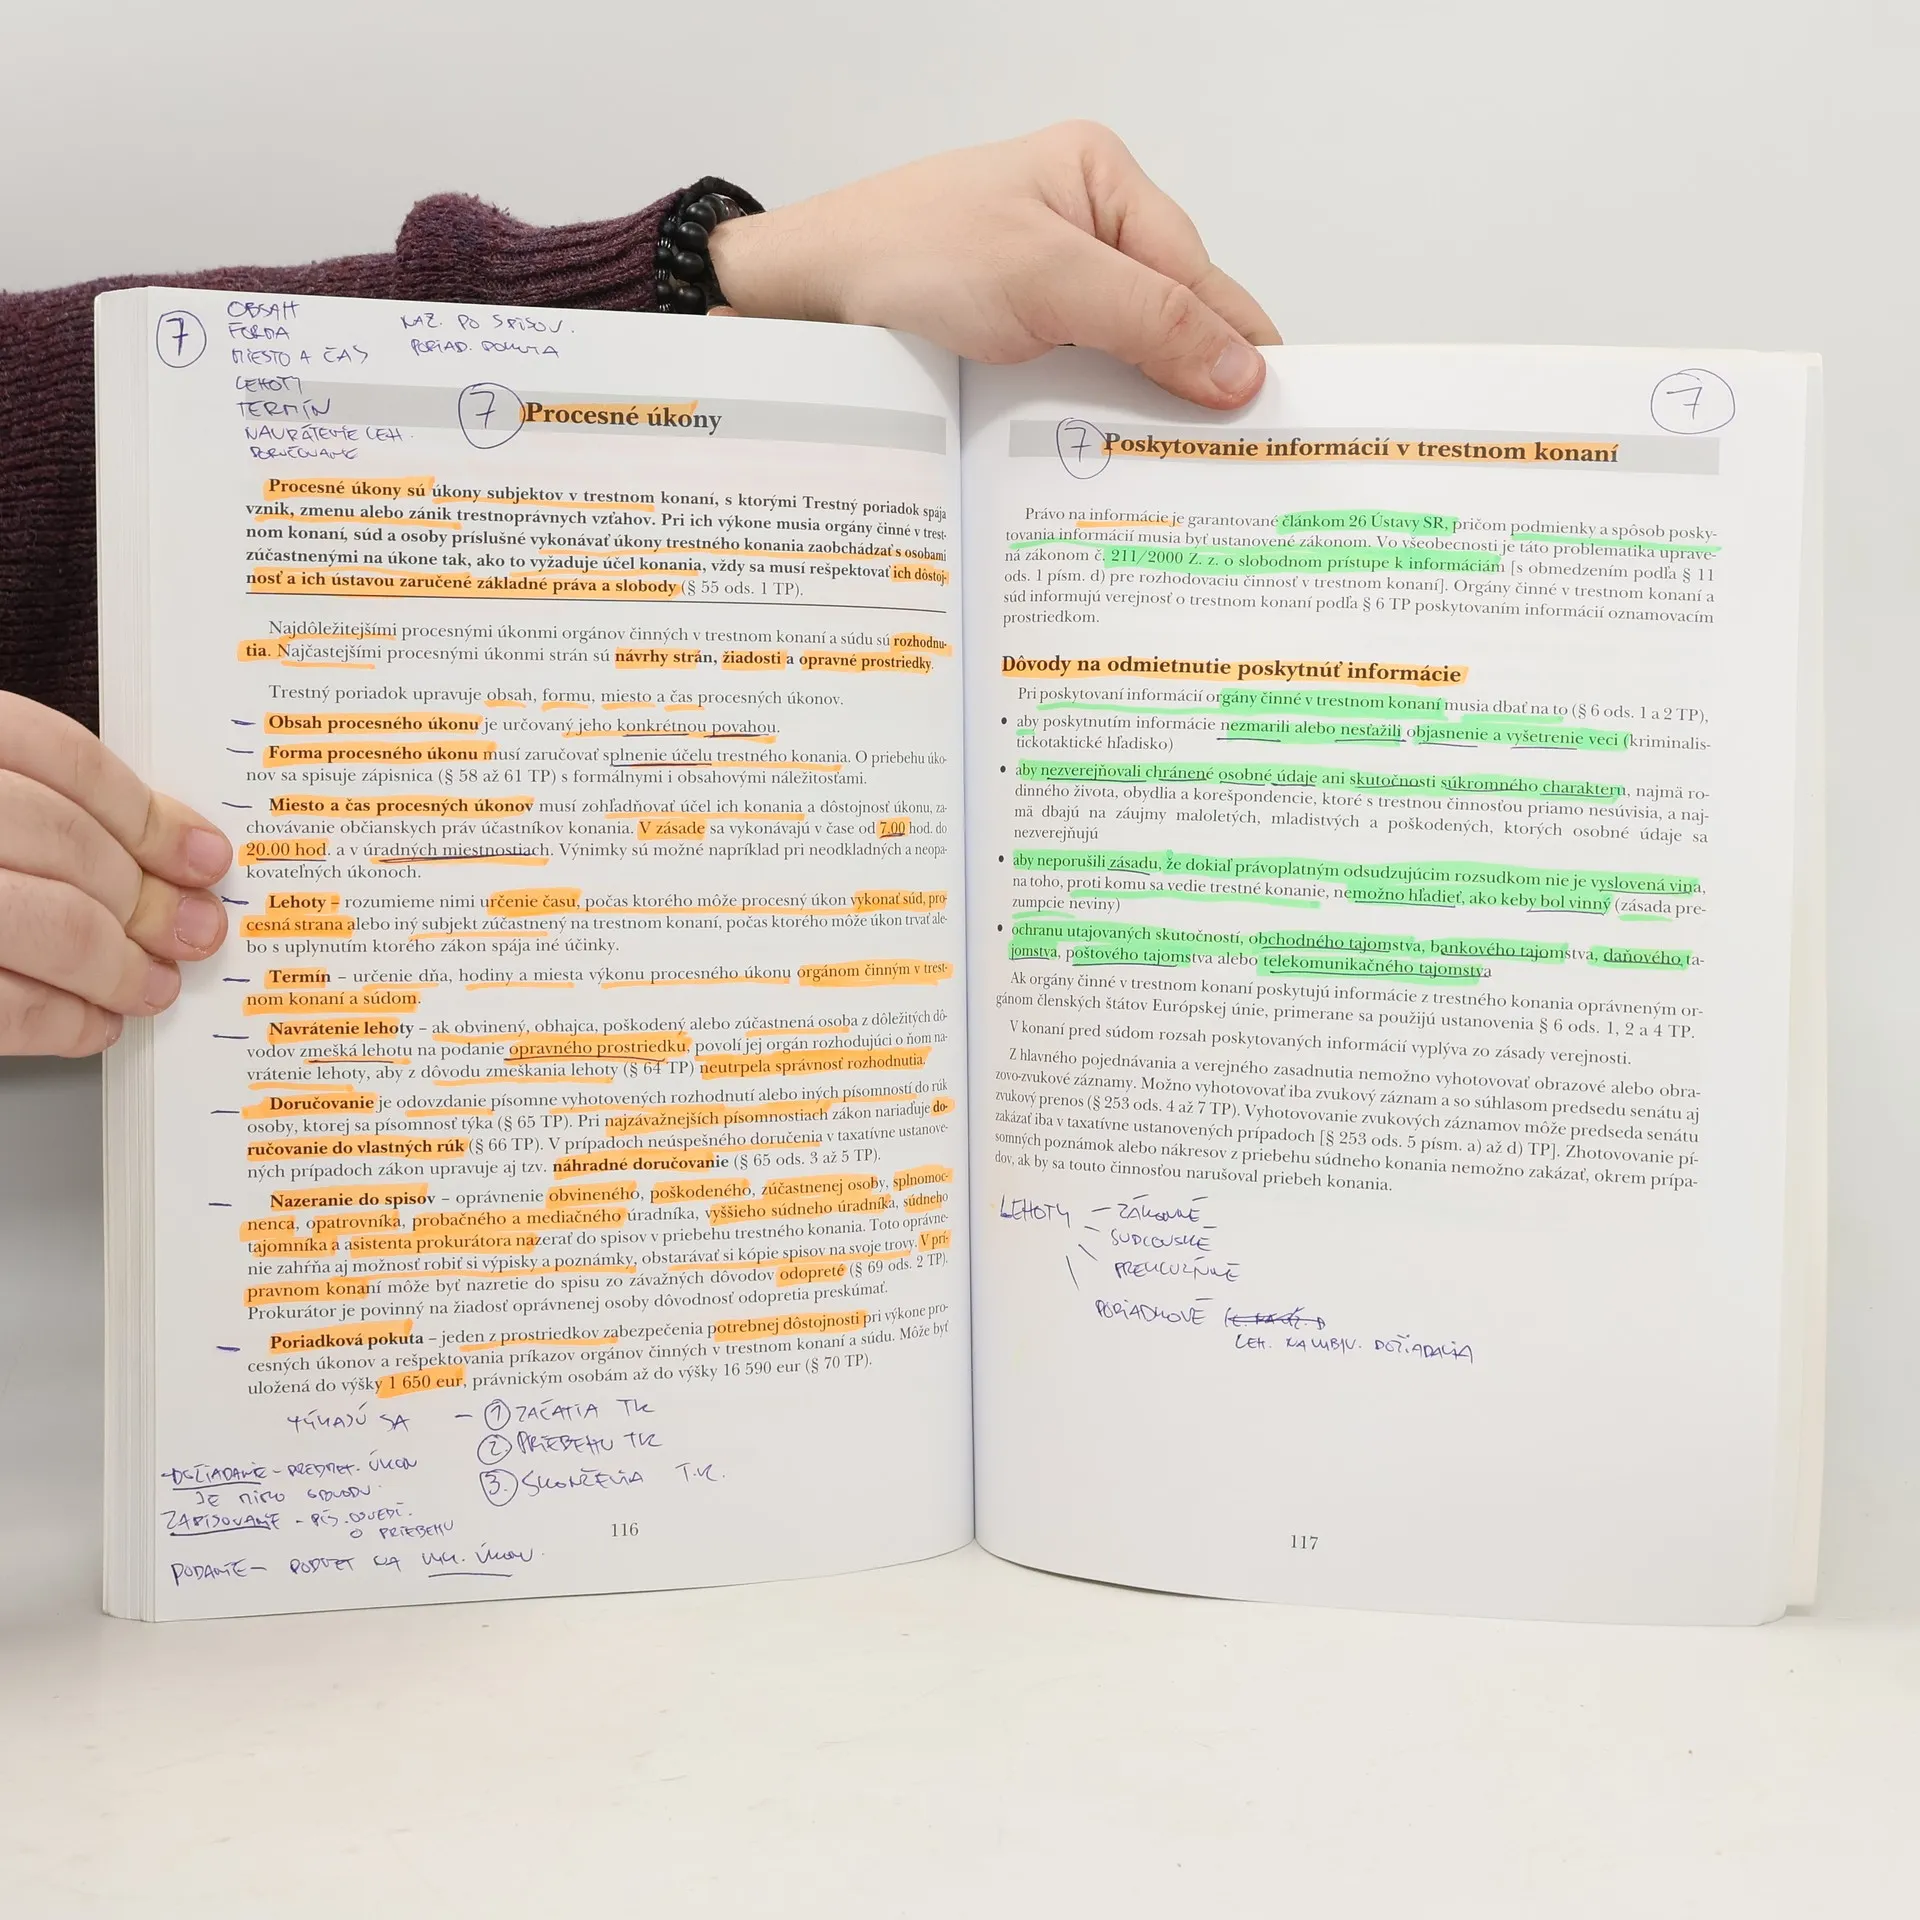 7
OBSAH
FORMA
MIESTO A ČAS
LEHOTY
TERMÍN
NAVRÁTENIE LEH.
DORUČOVANIE
NAZ. DO SPISOV.
PORIAD. POKUTA
7 Procesné úkony
Procesné úkony sú úkony subjektov v trestnom konaní, s ktorými Trestný poriadok spája
vznik, zmenu alebo zánik trestnoprávnych vzťahov. Pri ich výkone musia orgány činné v trest-
nom konaní, súd a osoby príslušné vykonávať úkony trestného konania zaobchádzať s osobami
zúčastnenými na úkone tak, ako to vyžaduje účel konania, vždy sa musí rešpektovať ich dôstoj-
nosť a ich ústavou zaručené základné práva a slobody (§ 55 ods. 1 TP).
Najdôležitejšími procesnými úkonmi orgánov činných v trestnom konaní a súdu sú rozhodnu-
tia. Najčastejšími procesnými úkonmi strán sú návrhy strán, žiadosti a opravné prostriedky.
Trestný poriadok upravuje obsah, formu, miesto a čas procesných úkonov.
Obsah procesného úkonu je určovaný jeho konkrétnou povahou.
Forma procesného úkonu musí zaručovať splnenie účelu trestného konania. O priebehu úko-
nov sa spisuje zápisnica (§ 58 až 61 TP) s formálnymi i obsahovými náležitosťami.
Miesto a čas procesných úkonov musí zohľadňovať účel ich konania a dôstojnosť úkonu, za-
chovávanie občianskych práv účastníkov konania. V zásade sa vykonávajú v čase od 7.00 hod. do
20.00 hod. a v úradných miestnostiach. Výnimky sú možné napríklad pri neodkladných a neopa-
kovateľných úkonoch.
Lehoty – rozumieme nimi určenie času, počas ktorého môže procesný úkon vykonať súd, pro-
cesná strana alebo iný subjekt zúčastnený na trestnom konaní, počas ktorého môže úkon trvať ale-
bo s uplynutím ktorého zákon spája iné účinky.
Termín – určenie dňa, hodiny a miesta výkonu procesného úkonu orgánom činným v trest-
nom konaní a súdom.
Navrátenie lehoty – ak obvinený, obhajca, poškodený alebo zúčastnená osoba z dôležitých dô-
vodov zmešká lehotu na podanie opravného prostriedku, povolí jej orgán rozhodujúci o ňom na-
vrátenie lehoty, aby z dôvodu zmeškania lehoty (§ 64 TP) neutrpela správnosť rozhodnutia.
Doručovanie je odovzdanie písomne vyhotovených rozhodnutí alebo iných písomností do rúk
osoby, ktorej sa písomnosť týka (§ 65 TP). Pri najzávažnejších písomnostiach zákon nariaďuje do-
ručovanie do vlastných rúk (§ 66 TP). V prípadoch neúspešného doručenia v taxatívne ustanove-
ných prípadoch zákon upravuje aj tzv. náhradné doručovanie (§ 65 ods. 3 až 5 TP).
Nazeranie do spisov – oprávnenie obvineného, poškodeného, zúčastnenej osoby, splnomoc-
nenca, opatrovníka, probačného a mediačného úradníka, vyššieho súdneho úradníka, súdneho
tajomníka a asistenta prokurátora nazerať do spisov v priebehu trestného konania. Toto oprávne-
nie zahŕňa aj možnosť robiť si výpisky a poznámky, obstarávať si kópie spisov na svoje trovy. V prí-
pravnom konaní môže byť nazretie do spisu zo závažných dôvodov odopreté (§ 69 ods. 2 TP).
Prokurátor je povinný na žiadosť oprávnenej osoby dôvodnosť odopretia preskúmať.
Poriadková pokuta – jeden z prostriedkov zabezpečenia potrebnej dôstojnosti pri výkone pro-
cesných úkonov a rešpektovania príkazov orgánov činných v trestnom konaní a súdu. Môže byť
uložená do výšky 1 650 eur, právnickým osobám až do výšky 16 590 eur (§ 70 TP).
TÝKAJÚ SA – 1 ZAČATIA TK
2. PRIEBEHU TK
3. SKONČENIA T.K.
DOŽIADANIE – PREDMET. ÚKON
JE MIMO OBVODU.
ZAPISOVANIE – PÍS. OSVEDČ.
O PRIEBEHU
PODANIE – PODNET NA VYK. ÚKON.
116
7
7 Poskytovanie informácií v trestnom konaní
Právo na informácie je garantované článkom 26 Ústavy SR, pričom podmienky a spôsob posky-
tovania informácií musia byť ustanovené zákonom. Vo všeobecnosti je táto problematika uprave-
ná zákonom č. 211/2000 Z. z. o slobodnom prístupe k informáciám [s obmedzením podľa § 11
ods. 1 písm. d) pre rozhodovaciu činnosť v trestnom konaní]. Orgány činné v trestnom konaní a
súd informujú verejnosť o trestnom konaní podľa § 6 TP poskytovaním informácií oznamovacím
prostriedkom.
Dôvody na odmietnutie poskytnúť informácie
Pri poskytovaní informácií orgány činné v trestnom konaní musia dbať na to (§ 6 ods. 1 a 2 TP),
• aby poskytnutím informácie nezmarili alebo nesťažili objasnenie a vyšetrenie veci (kriminalis-
tickotaktické hľadisko)
• aby nezverejňovali chránené osobné údaje ani skutočnosti súkromného charakteru, najmä ro-
dinného života, obydlia a korešpondencie, ktoré s trestnou činnosťou priamo nesúvisia, a naj-
mä dbajú na záujmy maloletých, mladistvých a poškodených, ktorých osobné údaje sa
nezverejňujú
• aby neporušili zásadu, že dokiaľ právoplatným odsudzujúcim rozsudkom nie je vyslovená vina,
na toho, proti komu sa vedie trestné konanie, nemožno hľadieť, ako keby bol vinný (zásada pre-
zumpcie neviny)
• ochranu utajovaných skutočností, obchodného tajomstva, bankového tajomstva, daňového ta-
jomstva, poštového tajomstva alebo telekomunikačného tajomstva
Ak orgány činné v trestnom konaní poskytujú informácie z trestného konania oprávneným or-
gánom členských štátov Európskej únie, primerane sa použijú ustanovenia § 6 ods. 1, 2 a 4 TP.
V konaní pred súdom rozsah poskytovaných informácií vyplýva zo zásady verejnosti.
Z hlavného pojednávania a verejného zasadnutia nemožno vyhotovovať obrazové alebo obra-
zovo-zvukové záznamy. Možno vyhotovovať iba zvukový záznam a so súhlasom predsedu senátu aj
zvukový prenos (§ 253 ods. 4 až 7 TP). Vyhotovovanie zvukových záznamov môže predseda senátu
zakázať iba v taxatívne ustanovených prípadoch [§ 253 ods. 5 písm. a) až d) TP]. Zhotovovanie pí-
somných poznámok alebo nákresov z priebehu súdneho konania nemožno zakázať, okrem prípa-
dov, ak by sa touto činnosťou narušoval priebeh konania.
LEHOTY – ZÁKONNÉ
– SUDCOVSKÉ
PREKLUZÍVNE
PORIADKOVÉ
LEH. NA VYBAV. DOŽIADANIA
117